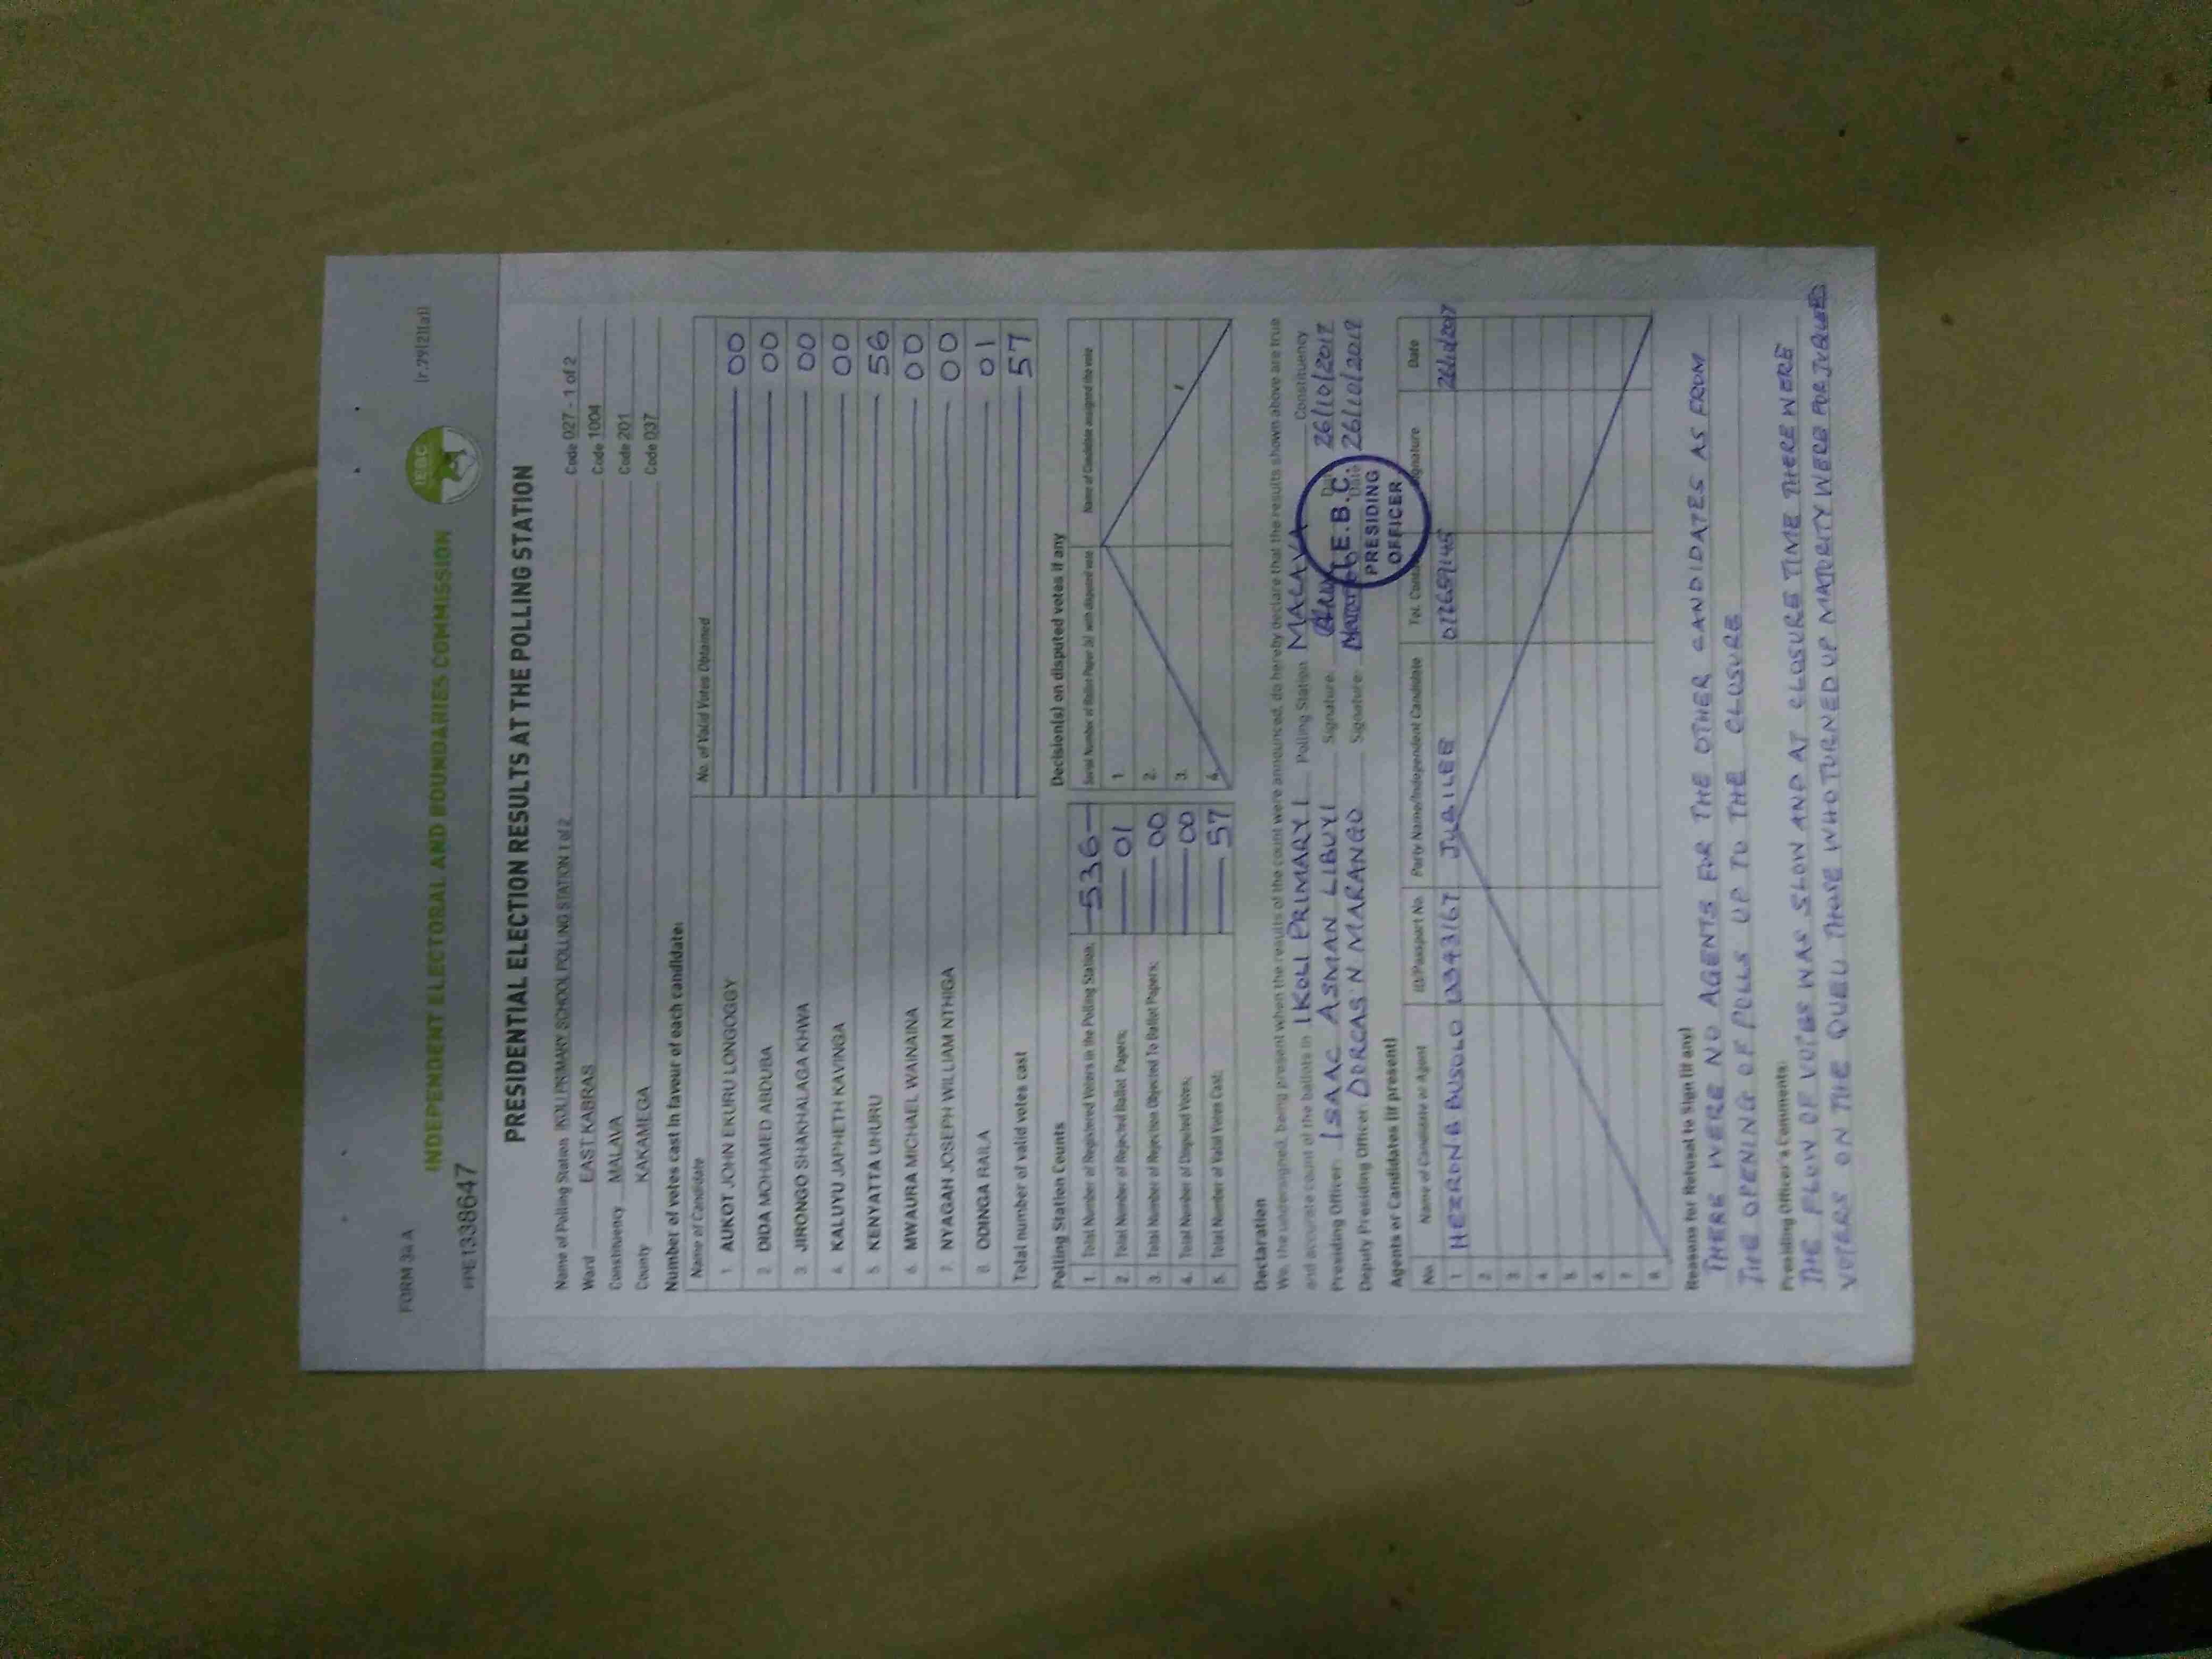 FORM 34 A
(r.79(2)(a))
INDEPENDENT ELECTORAL AND BOUNDARIES COMMISSION
IEBC
PPE1338647
PRESIDENTIAL ELECTION RESULTS AT THE POLLING STATION
Name of Polling Station IKOLI PRIMARY SCHOOL POLLING STATION 1 of 2 Code 027 - 1 of 2
Ward EAST KABRAS Code 1004
Constituency MALAVA Code 201
County KAKAMEGA Code 037
Number of votes cast in favour of each candidate:
Name of Candidate No. of Valid Votes Obtained
1 AUKOT JOHN EKURU LONGOGGY 00
2 DIDA MOHAMED ABDUBA 00
3 JIRONGO SHAKHALAGA KHWA 00
4 KALUYU JAPHETH KAVINGA 00
5 KENYATTA UHURU 56
6 MWAURA MICHAEL WAINAINA 00
7 NYAGAH JOSEPH WILLIAM NTHIGA 00
8 ODINGA RAILA 01
Total number of valid votes cast 57
Polling Station Counts
1. Total Number of Registered Voters in the Polling Station: 536
2. Total Number of Rejected Ballot Papers: 01
3. Total Number of Rejection Objected To Ballot Papers: 00
4. Total Number of Disputed Votes: 00
5. Total Number of Valid Votes Cast: 57
Decision(s) on disputed votes if any
Serial Number of Ballot Paper (s) with disputed vote Name of Candidate assigned the vote
1.
2.
3.
4.
Declaration
We, the undersigned, being present when the results of the count were announced, do hereby declare that the results shown above are true
and accurate count of the ballots in IKOLI PRIMARY 1 Polling Station MALAVA Constituency
Presiding Officer: ISAAC ASMAN LIBUYI Signature: 26/10/2017
Deputy Presiding Officer: DORCAS N MARANGO Signature: Date: 26/10/2017
I.E.B.C.
PRESIDING
OFFICER
Agents or Candidates (if present)
No. Name of Candidate or Agent ID/Passport No. Party Name/Independent Candidate Date
1 HEZRON B BUSOLO JUBILEE 26/10/2017
2
3
4
5
6
7
8
Reasons for Refusal to Sign (if any)
THERE WERE NO AGENTS FOR THE OTHER CANDIDATES AS FROM
THE OPENING OF POLLS UP TO THE CLOSURE
Presiding Officer's Comments:
THE FLOW OF VOTERS WAS SLOW AND AT CLOSURE TIME THERE WERE
VOTERS ON THE QUEU THOSE WHO TURNED UP MAJORITY WERE FOR JUBILEE